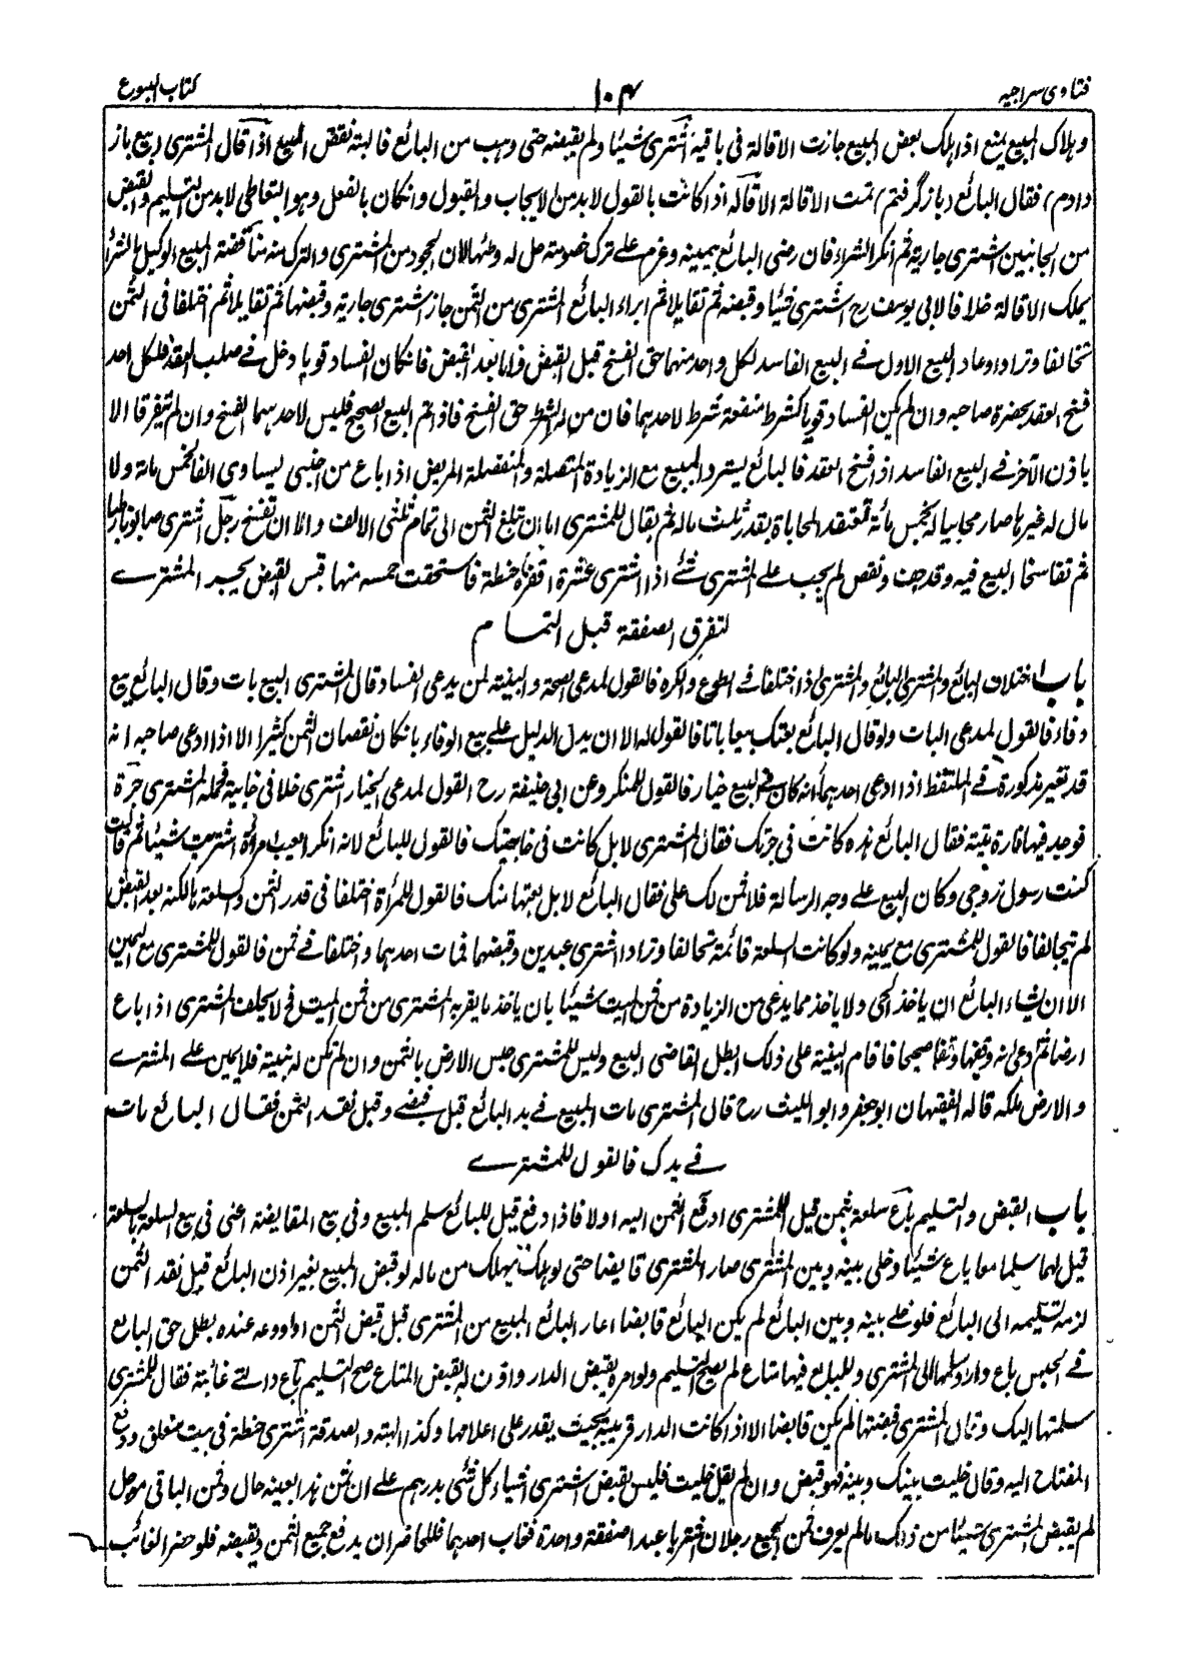 فتاوى سراجيه ١٠٤ كتاب البيوع
وهلاك المبيع يمنع اذا هلك بعض المبيع جازت الاقالة فى باقيه اشترى شيئا ولم يقبضه حتى وهب من البائع فالهبة نقض المبيع اذا قال المشترى (بيع باز
دادم) فقال البائع (بازگرفتم) تمت الاقالة الاقاله اذا كانت بالقول لابد من الايجاب والقبول وانكان بالفعل وهو التعاطى لابد من التسليم والقبض
من الجانبين اشترى جارية ثم انكر الشراء فان رضى البائع بيمينه وعزم على ترك خصومته حل له وطئها لان الجحود من المشترى والترك منه مناقضة للبيع الوكيل بالشراء
يملك الاقالة خلافا لابى يوسف رح اشترى شيئا وقبضه ثم تقايلا ثم ابراء البائع المشترى من الثمن جاز اشترى جارية وقبضها ثم تقايلا ثم اختلفا فى الثمن
تحالفا وترادا وعاد البيع الاول فے البيع الفاسد لكل واحد منهما حق الفسخ قبل القبض واما بعد القبض فانكان الفساد قويا دخل فے صلب العقد فلكل احد
فسخ العقد بحضرة صاحبه وان لم يكن الفساد قويا كشرط منفعة شرط لاحدهما فان من له الشرط حق الفسخ فاذا تم البيع الصحيح فليس لاحدهما الفسخ وان لم يتفرقا الا
باذن الآخر فے البيع الفاسد اذا فسخ العقد فالبائع يسترد المبيع مع الزيادة المتصلة والمنفصلة المريض اذا باع من اجنبى ما يساوى الفا بخمس مائة ولا
مال له غيرها صار محابيا له بخمس مائة فتعتقد المحاباة بقدر ثلث ماله ثم يقال للمشترى اما ان تبلغ الثمن الى تمام ثلثى الالف والا ان تفسخ رجل اشترى صابونا رطبا
ثم تفاسخا البيع فيه وقد جف ونقص لم يجب علے المشترى شئ اذا اشترى عشرة اقفزة حنطة فاستحقت خمسه منها قبل القبض يخير المشترے
لتفرق الصفقة قبل التمام
باب اختلاف البائع والمشترى البائع والمشترى اذا اختلفا فے الطوع والكره فالقول لمدعى الصحة والبينة لمن يدعى الفساد قال المشترى البيع بات وقال البائع بيع
وفاء فالقول لمدعى البات ولو قال البائع بعتك بيعا باتا فالقول له الا ان يدل الدليل علے بيع الوفاء بانكان نقصان الثمن كثيرا الا اذا ادعى صاحبه انه
قد تغير مذكورة فے الملتقط اذا ادعى احدهما انه كان فے البيع خيار فالقول للمنكر وعن ابى حنيفة رح القول لمدعى الخيار اشترى خلا فى خابية فحمله المشترى جرة
فوجد فيها فارة ميتة فقال البائع هذه كانت فى جرتك فقال المشترى لا بل كانت فى خابيتك فالقول للبائع لانه انكر العيب امرأة اشتريت شيئا ثم قالت
كنت رسول زوجى وكان البيع علے وجه الرسالة فلا ثمن لك على فقال البائع لا بل بعتها منك فالقول للمرأة اختلفا فى قدر الثمن والسلعة هالكة بعد القبض
لم يتحالفا فالقول للمشترى مع يمينه ولو كانت السلعة قائمة تحالفا وترادا اشترى عبدين وقبضهما فمات احدهما واختلفا فے ثمن فالقول للمشترى مع اليمين
الا ان يشاء البائع ان ياخذ الحى ولا ياخذ مما يدعى من الزيادة من ثمن الميت شيئا بان ياخذ ما يقربه المشترى من ثمن الميت فح لا يحلف المشترى اذا باع
ارضا ثم ادعى انه وقفها وقفا صحيحا فاقام البينة على ذلك ابطل القاضى البيع وليس للمشترى حبس الارض بالثمن وان لم تكن له بينة فلا يمين علے المشترے
والارض ملكه قاله الفقيهان ابوجعفر وابو الليث رح قال المشترى مات المبيع فے يد البائع قبل قبضے وقبل نقد الثمن فقال البائع مات
فے يدك فالقول للمشترے
باب القبض والتسليم باع سلعة بثمن قيل للمشترى ادفع الثمن اليه اولا فاذا دفع قيل للبائع سلم المبيع وفى بيع المقايضة اعنى فى بيع السلعة بالسلعة
قيل لهما سلما معا باع شيئا وخلى بينه وبين المشترى صار المشترى قابضا حتى لو هلك يهلك من ماله لو قبض المبيع بغير اذن البائع قبل نقد الثمن
لزمه تسليمه الى البائع فلو خلے بينه وبين البائع لم يكن البائع قابضا اعار البائع المبيع من المشترى قبل قبض الثمن او اودعه عنده بطل حق البائع
فے الحبس باع دارا وسلمها الى المشترى وللبايع فيها متاع لم يصح التسليم ولو امره بقبض الدار واذن له بقبض المتاع صح التسليم باع دارا هى غائبة فقال للمشترى
سلمتها اليك وقال المشترى قبضتها لم يكن قابضا الا اذا كانت الدار قريبة بحيث يقدر على اغلاقها وكذا الهبة والصدقة اشترى حنطة فى بيت مغلق ودفع
المفتاح اليه وقال خليت بينك وبينه فهو قبض وان لم يقل خليت فليس بقبض اشترى اشياء كل شئ بدرهم علے ان ثمن هذا بعينه حال وثمن الباقى مؤجل
لم يقبض المشترى شيئا من ذلك مالم يعرف ثمن الجميع رجلان اشتريا عبدا صفقة واحدة فغاب احدهما فللحاضر ان يدفع جميع الثمن ويقبضه فلو حضر الغائب